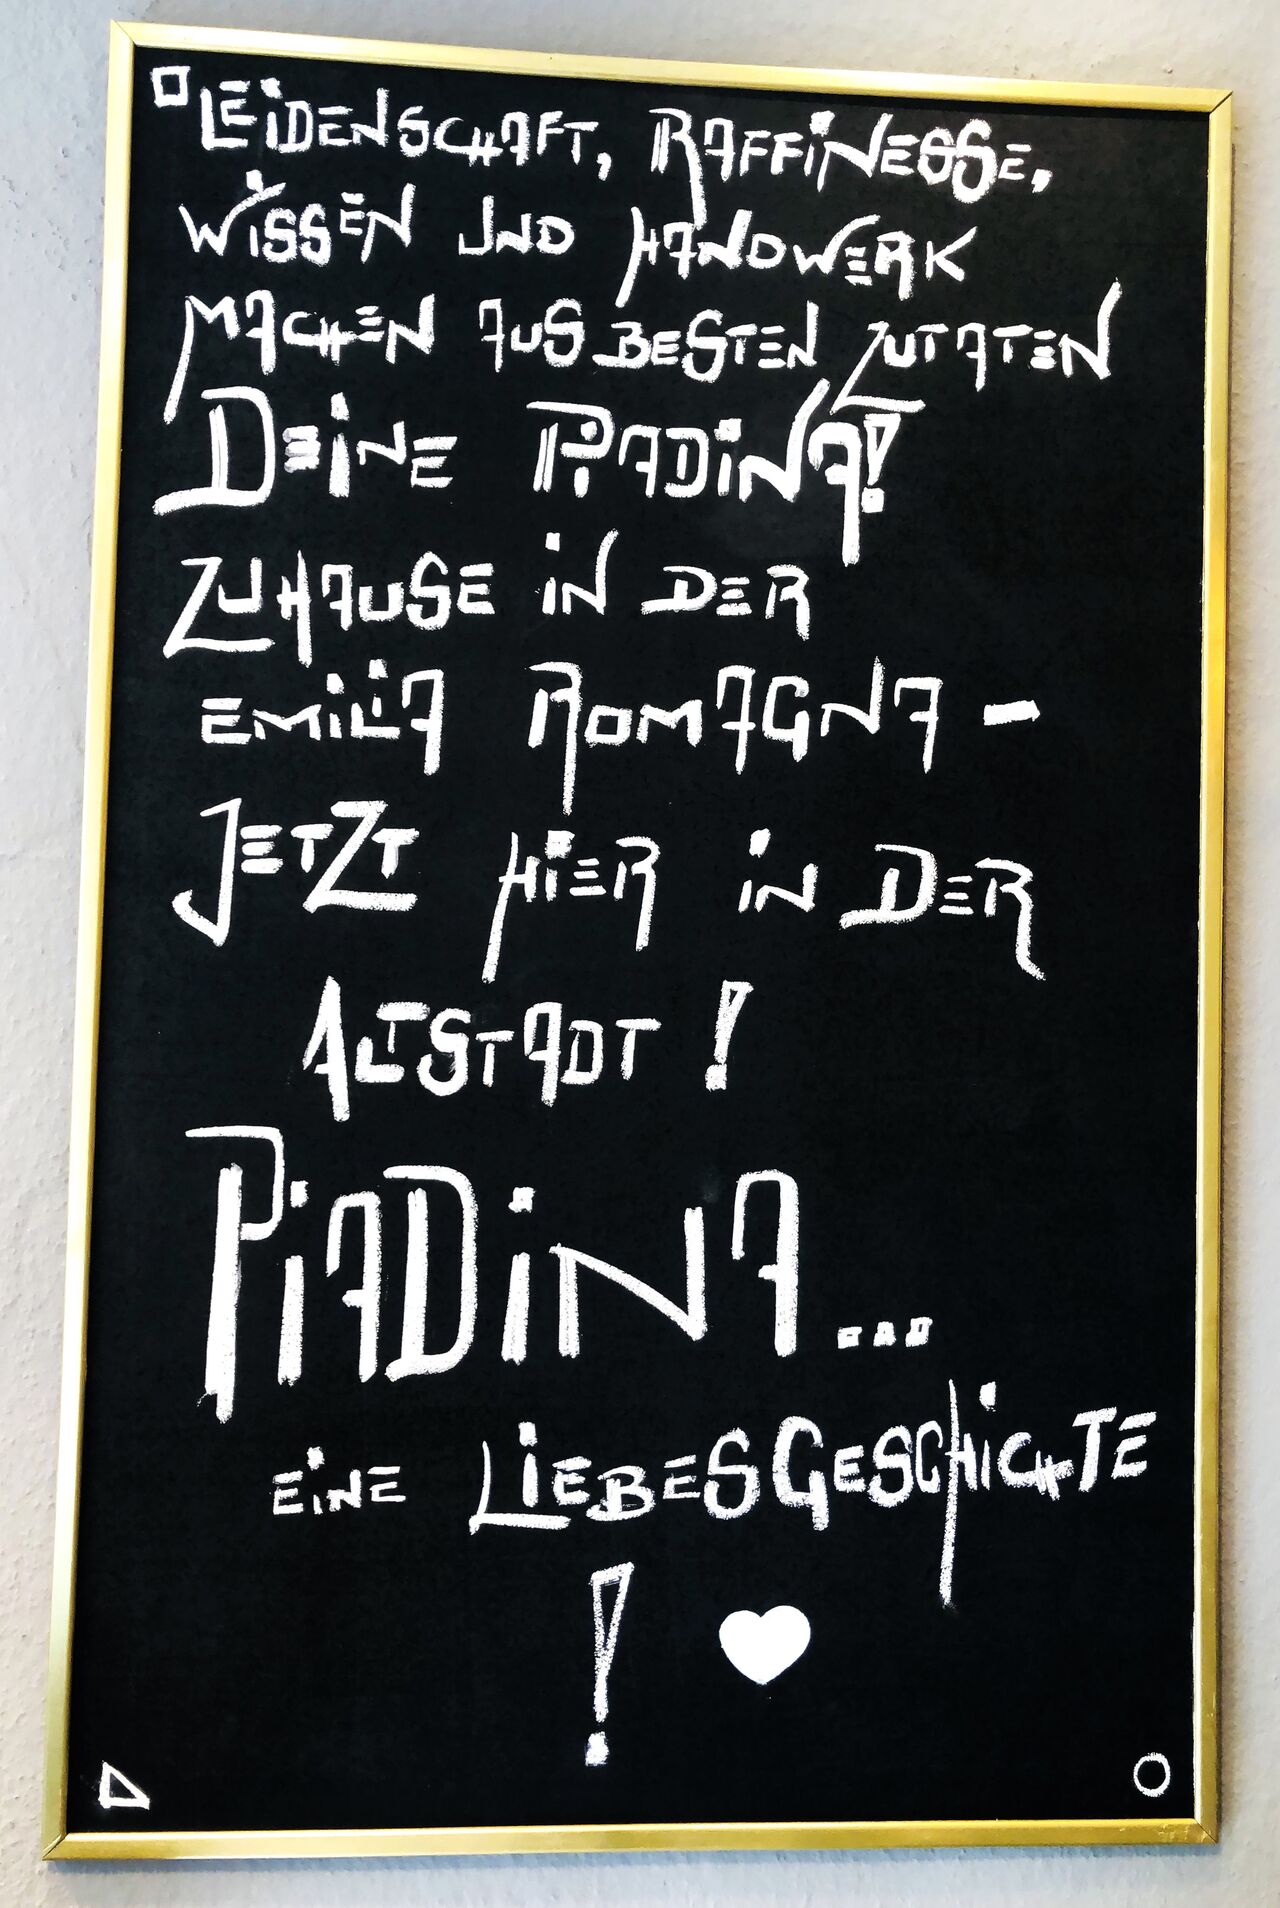 LEIDENSCHAFT, RAFFINESSE,
WISSEN UND HANDWERK
MACHEN AUS BESTEN ZUTATEN
DEINE PIADINA!
ZUHAUSE IN DER
EMILIA ROMAGNA -
JETZT HIER IN DER
ALTSTADT!
PIADINA...
EINE LIEBESGESCHICHTE
!